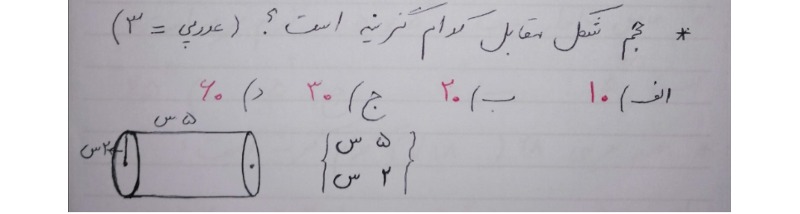 * حجم شکل مقابل کدام گزینه است؟ (عدد پی = ۳)
الف) ۱۰ ب) ۲۰ ج) ۳۰ د) ۶۰
۵ س
۲ س
{ ۵ س }
{ ۲ س }